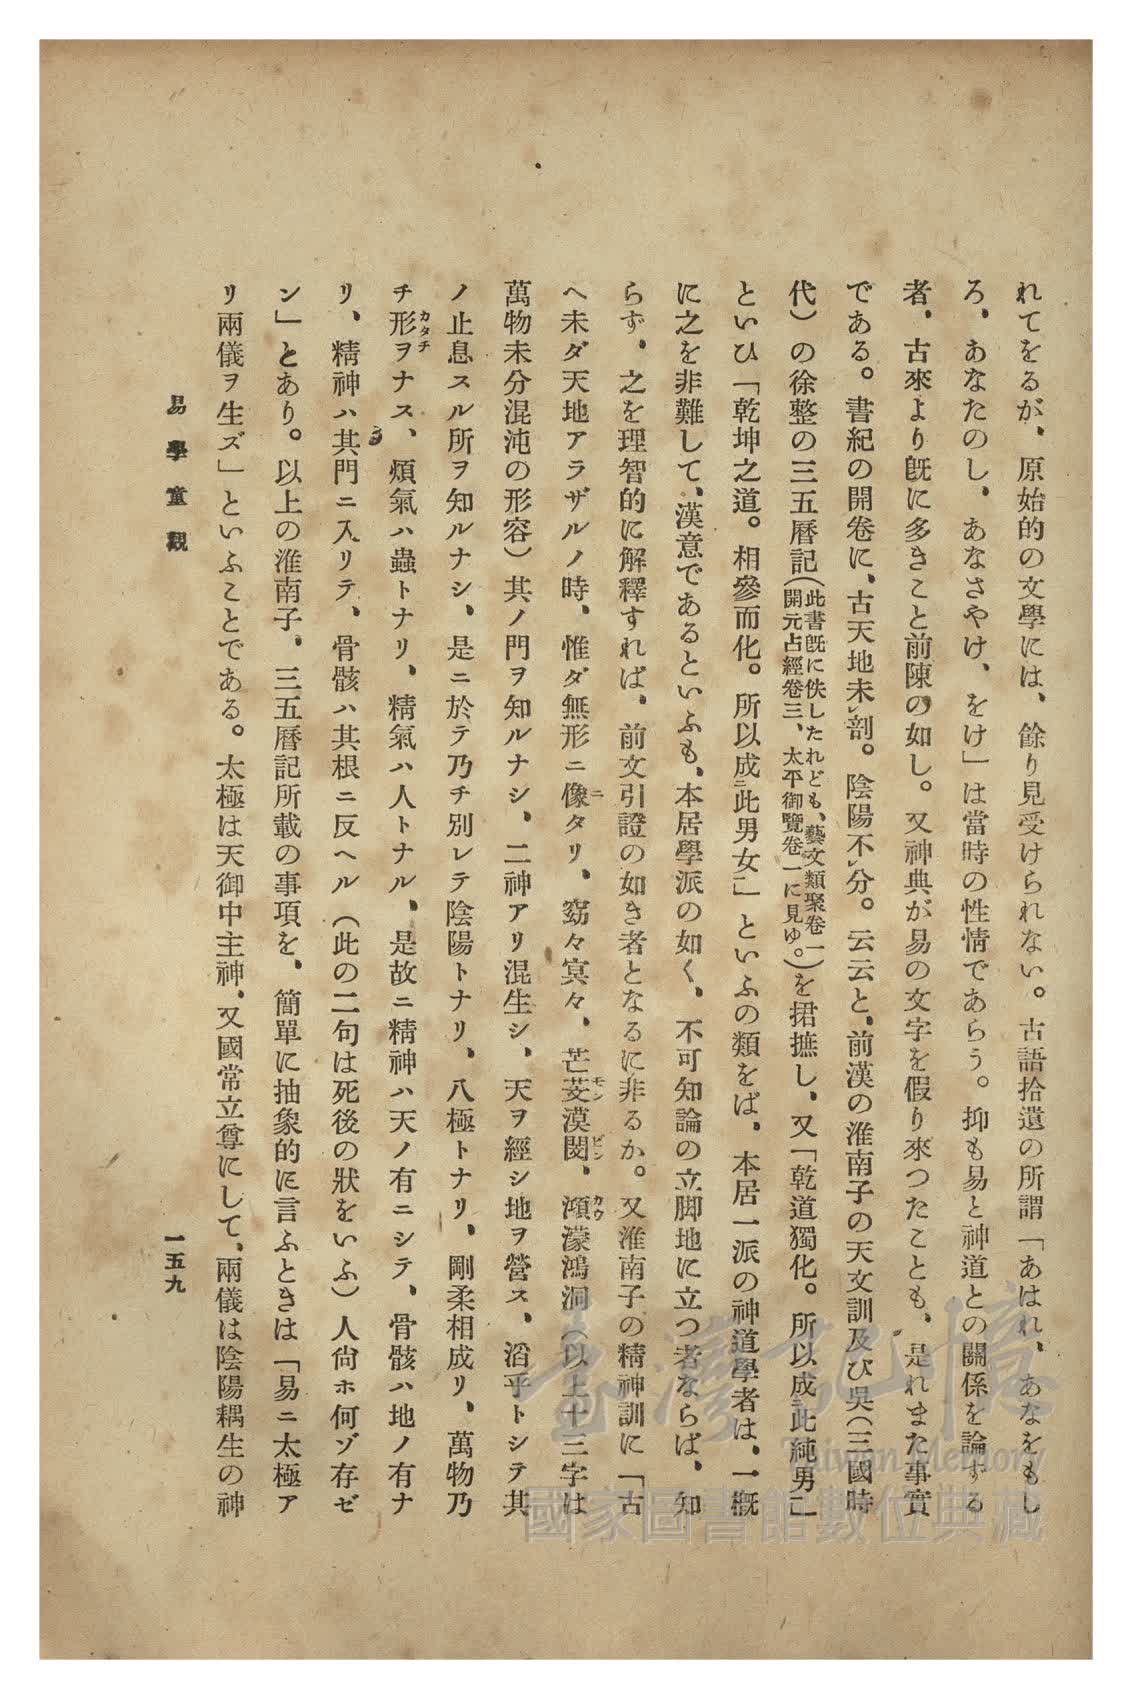 れてをるが、原始的の文學には、餘り見受けられない。古語拾遺の所謂「あはれ、あなをもし
ろ、あなたのし、あなさやけ、をけ」は當時の性情であらう。抑も易と神道との關係を論ずる
者、古來より旣に多きこと前陳の如し。又神典が易の文字を假り來つたことも、是れまた事實
である。書紀の開卷に、古天地未レ剖。陰陽不レ分。云云と、前漢の淮南子の天文訓及び吳(三國時
代)の徐整の三五曆記(此書旣に佚したれども、藝文類聚卷一開元占經卷三、太平御覽卷一に見ゆ。)を捃摭し、又「乾道獨化。所以成二此純男一」
といひ「乾坤之道。相參而化。所以成二此男女一」といふの類をば、本居一派の神道學者は、一概
に之を非難して、漢意であるといふも、本居學派の如く、不可知論の立脚地に立つ者ならば、知
らず、之を理智的に解釋すれば、前文引證の如き者となるに非るか。又淮南子の精神訓に「古
ヘ未ダ天地アラザルノ時、惟ダ無形ニ像ニタリ、窈々冥々、芒芠モン漠閔ビン、澒カウ濛鴻洞(以上十三字は
萬物未分混沌の形容)其ノ門ヲ知ルナシ、二神アリ混生シ、天ヲ經シ地ヲ營ス、滔乎トシテ其
ノ止息スル所ヲ知ルナシ、是ニ於テ乃チ別レテ陰陽トナリ、八極トナリ、剛柔相成リ、萬物乃
チ形カタチヲナス、煩氣ハ蟲トナリ、精氣ハ人トナル、是故ニ精神ハ天ノ有ニシテ、骨骸ハ地ノ有ナ
リ、精神ハ其門ニ入リテ、骨骸ハ其根ニ反ヘル(此の二句は死後の狀をいふ)人尙ホ何ゾ存ゼ
ン」とあり。以上の淮南子、三五曆記所載の事項を、簡單に抽象的に言ふときは「易ニ太極ア
リ兩儀ヲ生ズ」といふことである。太極は天御中主神、又國常立尊にして、兩儀は陰陽耦生の神
易學童觀
一五九
臺灣記憶
Taiwan Memory
國家圖書館數位典藏